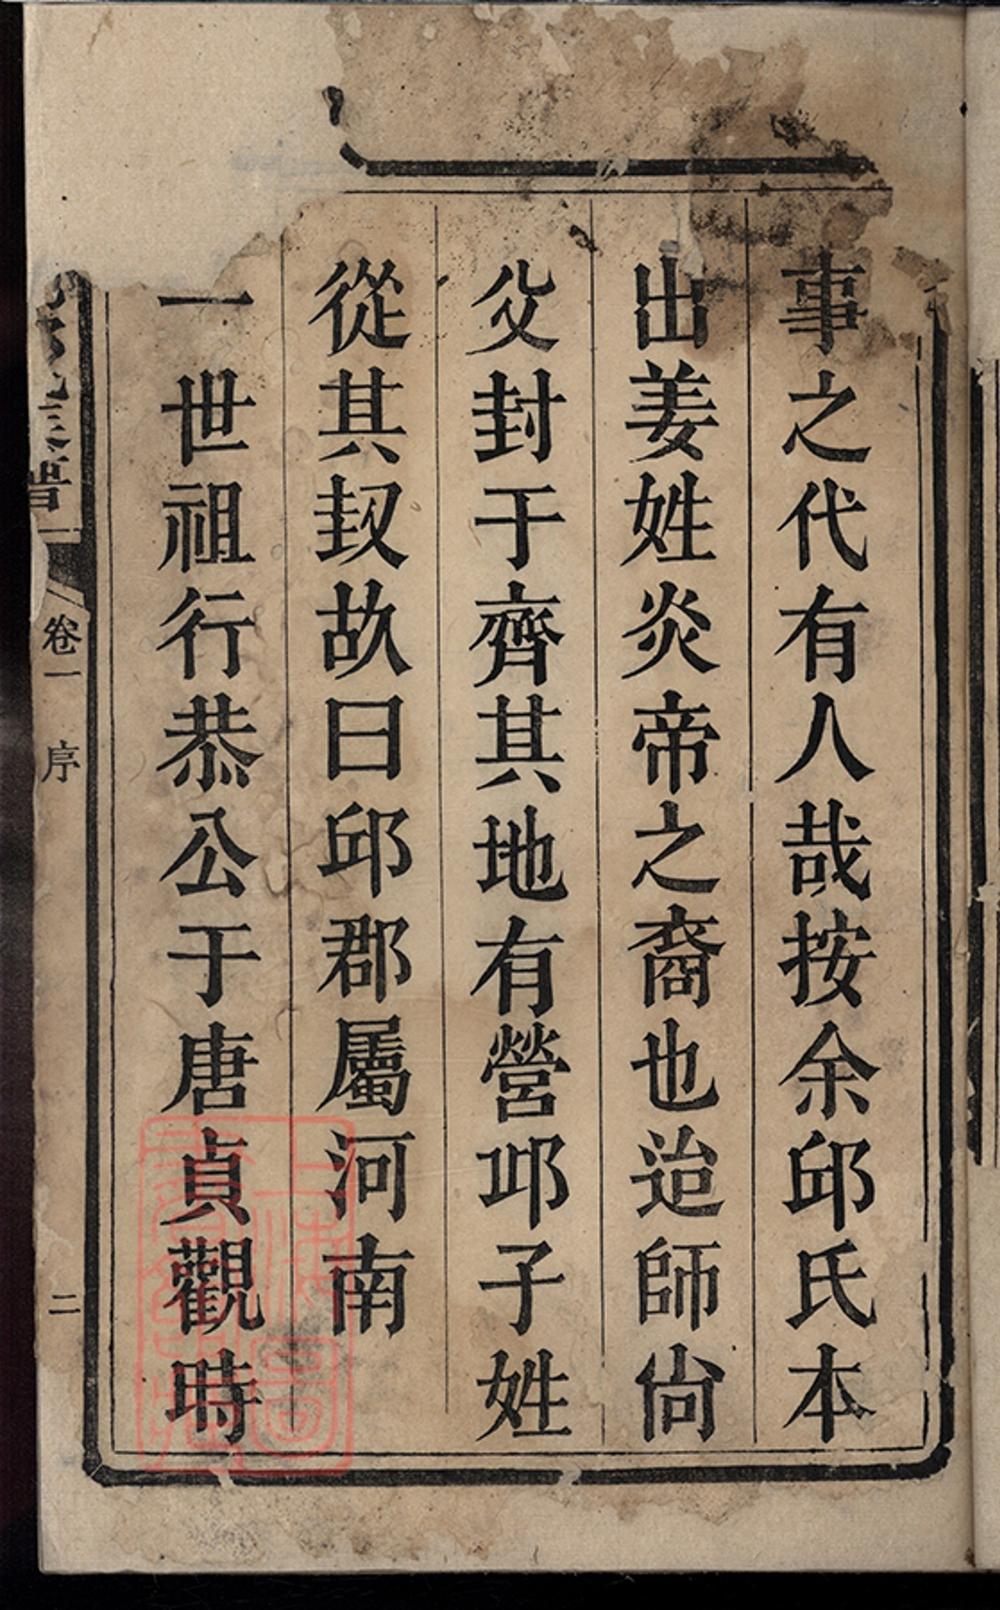 事之代有人哉按余邱氏本
出姜姓炎帝之裔也迨師尙
父封于齊其地有營邱子姓
從其封故曰邱郡屬河南
一世祖行恭公于唐貞觀時
譜
卷一
序
二